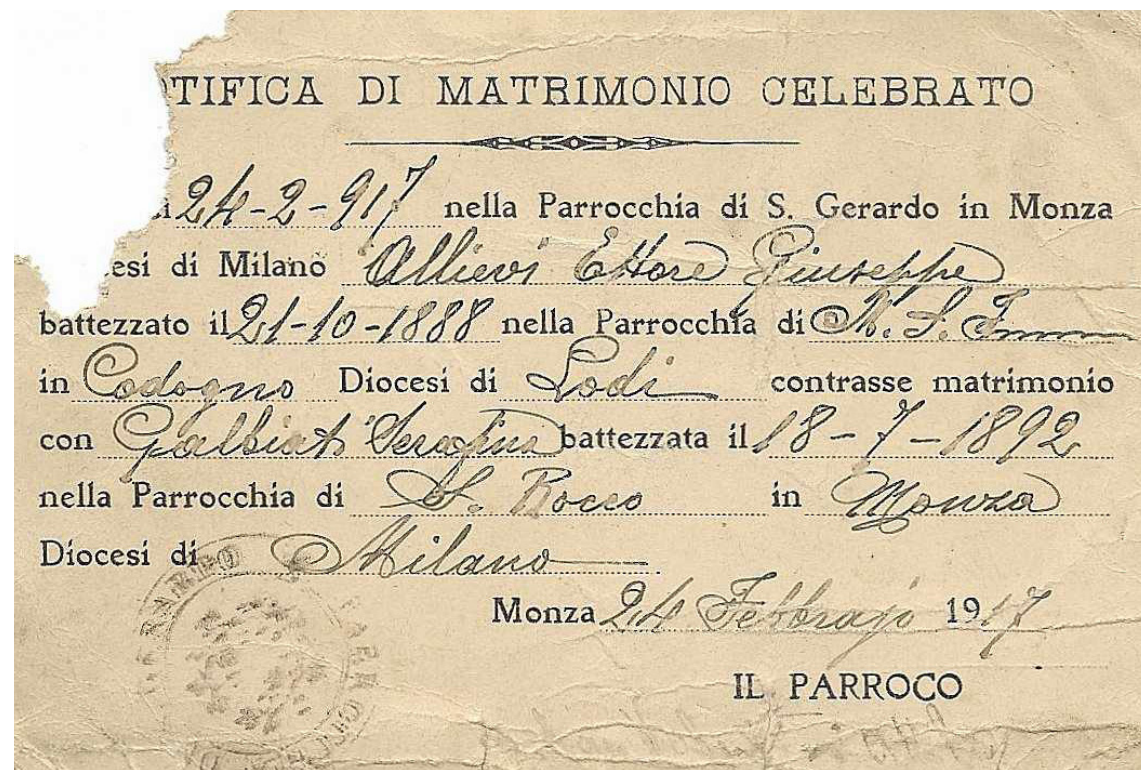 TIFICA DI MATRIMONIO CELEBRATO
24-2-917 nella Parrocchia di S. Gerardo in Monza
esi di Milano Allievi Ettore Giuseppe
battezzato il 21-10-1888 nella Parrocchia di
in Codogno Diocesi di Lodi contrasse matrimonio
con Galbiati Serafina battezzata il 18-7-1892
nella Parrocchia di S. Rocco in Monza
Diocesi di Milano
Monza 24 Febbrajo 1917
IL PARROCO